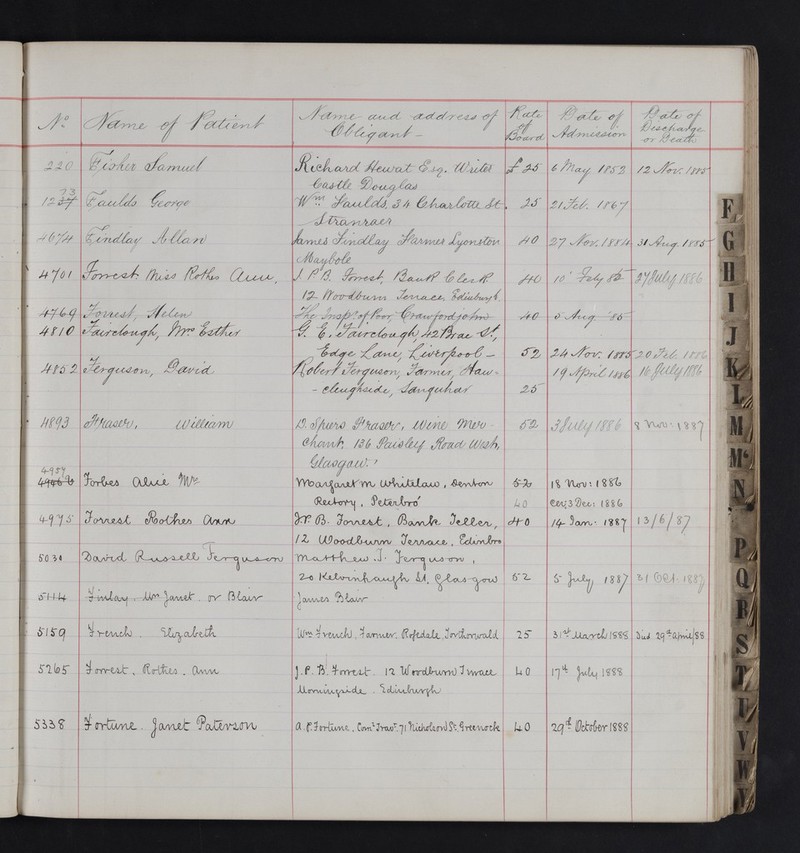 No Name of Patient Name and address of Obligant - Rate of Board Date of Admission Date of Discharge or Death
220 Fisher Samuel Richard Hewat Esq. Writer £ 25 6 May 1852 12 Nov. 1885
Castle Douglas
23
1237 Faulds George Wm Faulds, 34 Charlotte St. 25 21 Feb. 1867
Stranraer
4674 Findlay Allan James Findlay Farmer Lyonston 40 27 Nov. 1884 31 Aug. 1885
Maybole
4701 Forrest Miss Rothes Ann, J. P. B. Forrest, Bank Clerk 40 10 Feby 85 27 July 1886
12 Woodburn Terrace Edinburgh
4769 Forrest, Helen The Inspr. of Poor, Crawfordjohn 40 5 Aug 85
4810 Fairclough, Mrs Esther G. E. Fairclough, 42 Brae St.,
Edge Lane, Liverpool - 52 24 Nov. 1885 20 Feb. 1886
4852 Ferguson, David Robert Ferguson, Farmer, Haw- 19 April 1886 16 July 1886
- cleughside, Sanquhar 25
4893 Fraser, William D. Spiers Fraser, Wine Mer- 52 3 July 1886 8 Nov: 1887
chant, 136 Paisley Road West,
Glasgow.
4959
Forbes Alice Mrs Margaret M Whitelaw, Denton 52 18 Nov: 1886
Rectory, Peterbro' 40 3 Dec: 1886
4975 Forrest Rothes Ann J. P. B. Forrest, Bank Teller, 40 14 Jan. 1887 13/6/87
12 Woodburn Terrace, Edinbro
5030 David Russell Ferguson Matthew J. Ferguson,
20 Kelvinhaugh St. Glasgow 52 5 July 1887 31 Oct. 1887
5114 Finlay Mrs Janet or Blair James Blair
5159 French. Elizabeth Wm French. Farmer. Rosedale, Torthorwald 25 31st March 1888 Died 29th April/88
5265 Forrest. Rothes. Ann J. P. B. Forrest 12 Woodburn Terrace 40 17th July 1888
Morningside. Edinburgh
5338 Fortune. Janet Paterson A. P. Fortune. Coml Trav. 71 Nicholson St. Greenock 40 29th October 1888
F
G
H
I
J
K
L
M
Mc
N
P
Q
R
S
T
U
V
W
Y